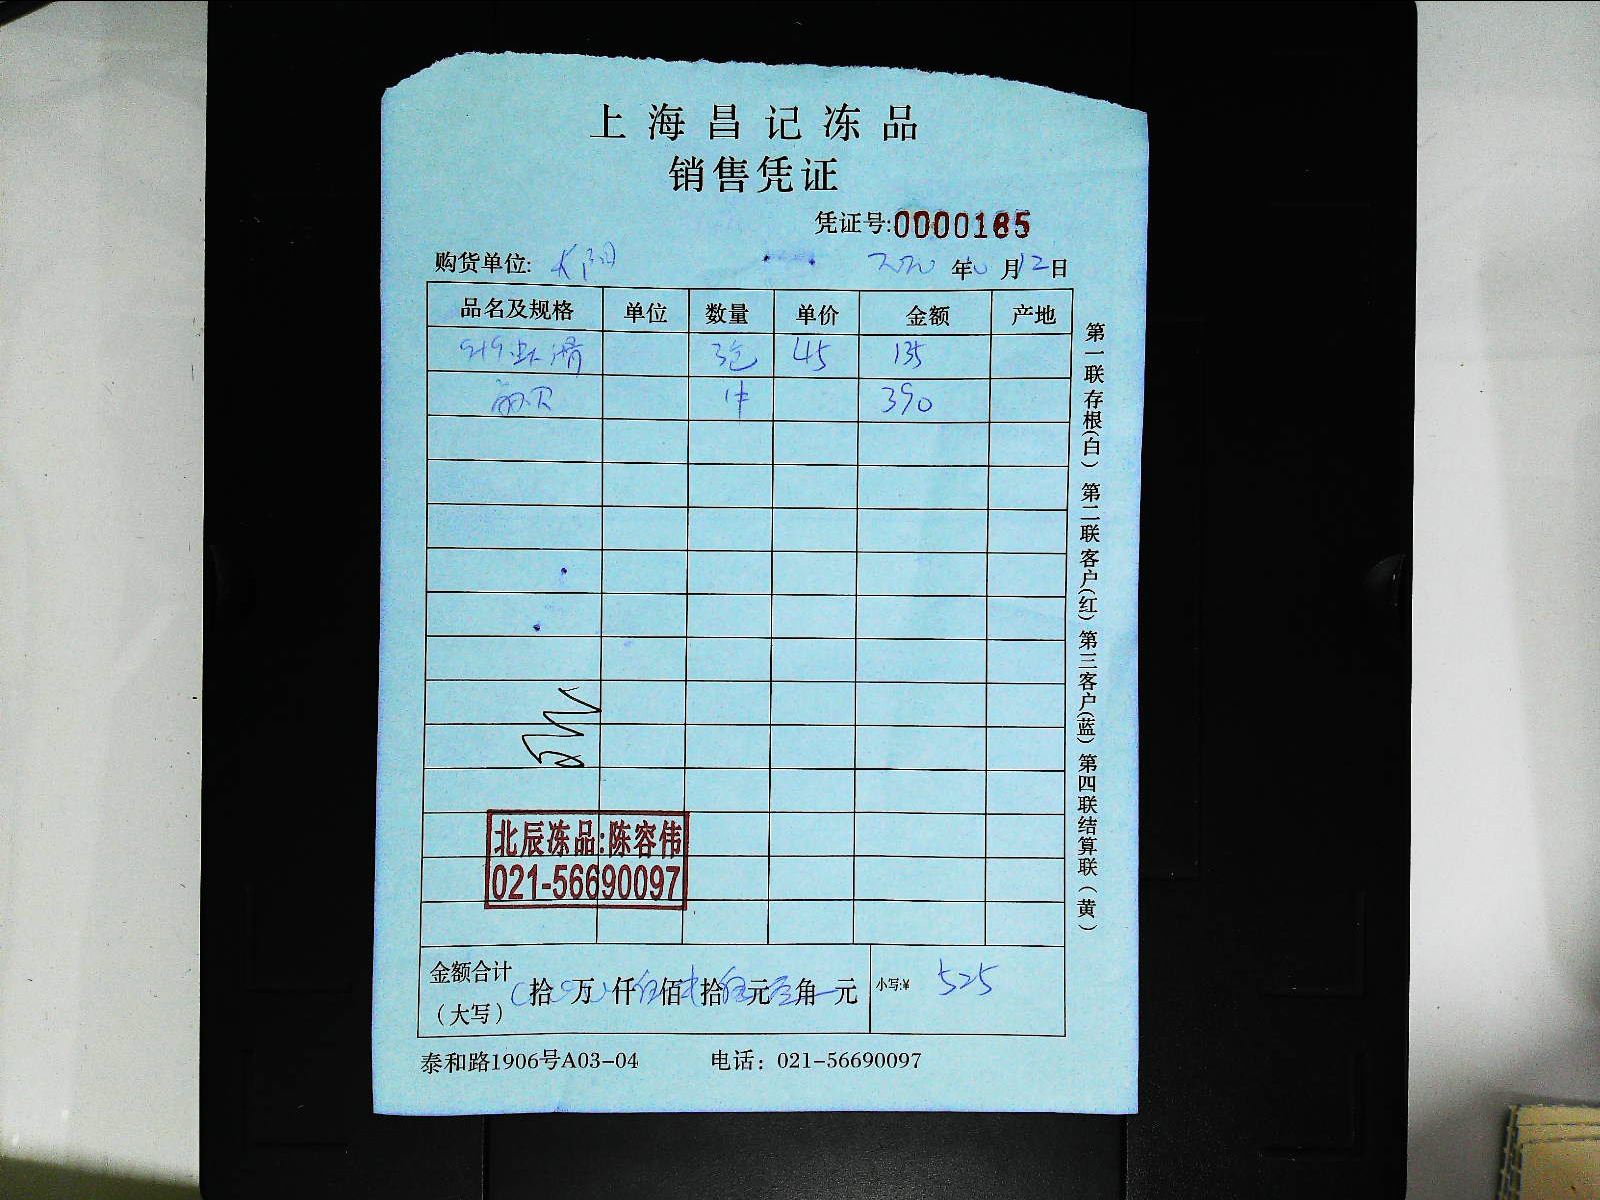 上海昌记冻品
销售凭证
凭证号:0000165
购货单位: 太阳 2020年10月12日
品名及规格 单位 数量 单价 金额 产地
虾滑 3包 45 135
1件 390
北辰冻品:陈容伟
021-56690097
金额合计(大写) 拾 万 仟 伍佰 贰拾 伍元 角 元 小写:¥ 525
泰和路1906号A03-04 电话：021-56690097
第一联存根(白) 第二联客户(红) 第三客户(蓝) 第四联结算联(黄)